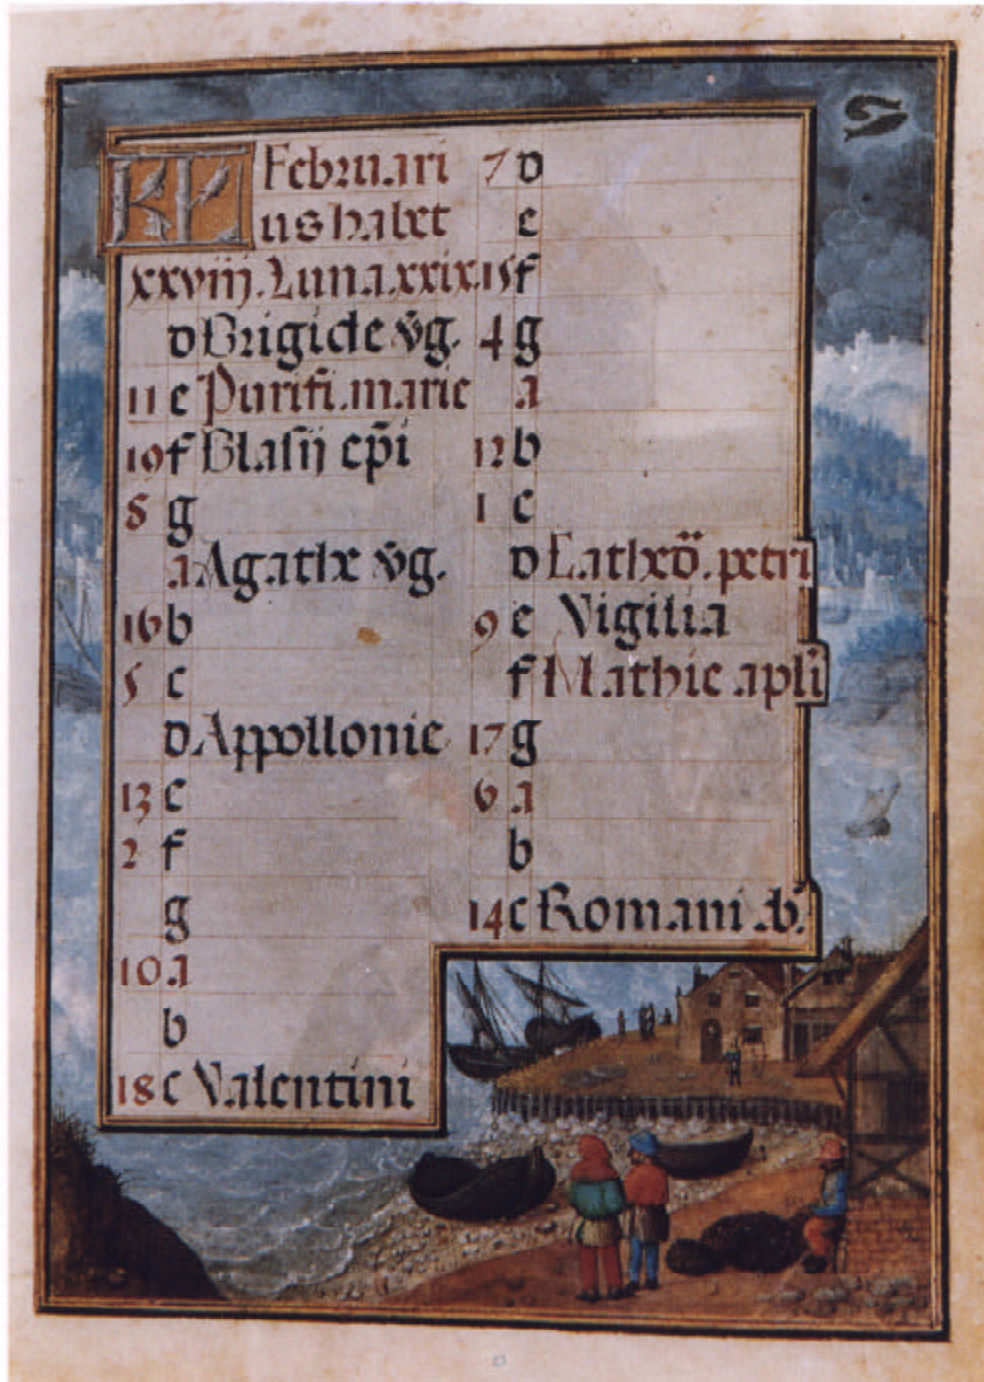 KL Februari
us habet
xxviij. Luna. xxix.
d Brigide v̄g.
11 e Purifi. marie
19 f Blasij ep̄i
8 g
a Agathe v̄g.
16 b
5 c
d Appollonie
13 e
2 f
g
10 a
b
18 c Valentini
7 d
e
15 f
4 g
a
12 b
1 c
d Cathed̄. petri
9 e Vigilia
f Mathie apl̄i
17 g
6 a
b
14 c Romani ab̄.
23